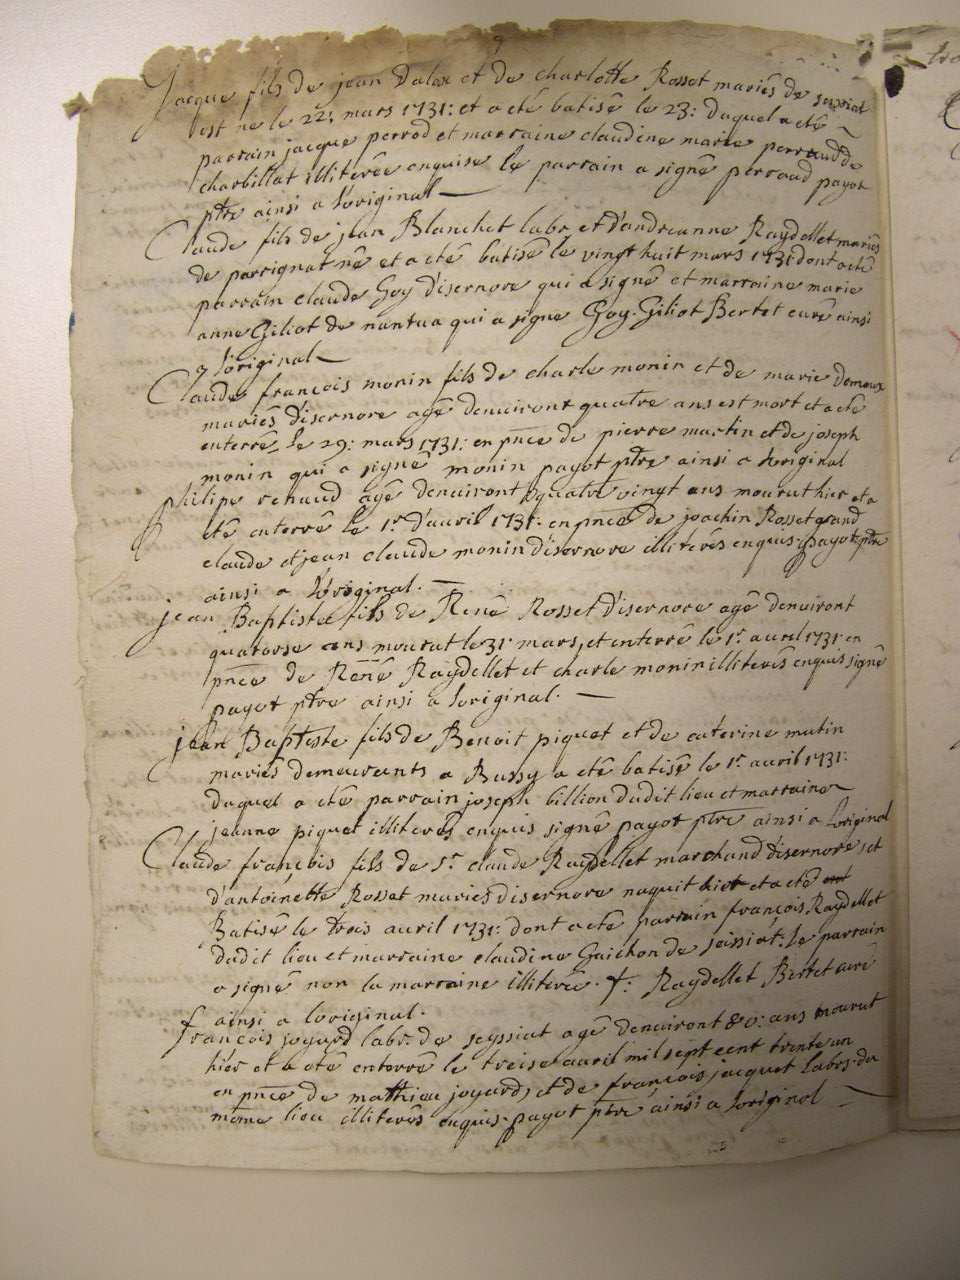 Jacque fils de jean Dalox et de charlotte Rosset mariés de
est ne le 22: mars 1731: et a eté batisé le 23: duquel a eté
parrain jacque perrod et marraine claudine marie perraud de
charbillat illiterée enquise le parrain a signé perraud payot
ptre ainsi a l'original
Claude fils de jean Blanchet labr. et d'andreanne Raydellet mariés
de perrignat né et a eté batisé le vingt huit mars 1731 dont a eté
parrain claude Goy d'isernore qui a signé et marraine marie
anne Giliot de nantua qui a signe Goy. Giliot Bertet curé ainsi
a l'original
Claude françois monin fils de charle monin et de marie
mariés d'isernore agé denuiront quatre ans est mort et a eté
enterré le 29: mars 1731: en pnce de pierre martin et de joseph
monin qui a signé monin payot ptre ainsi a loriginal
philipe renaud agé denuiront quatre vingt ans mourut hier et a
eté enterré le 1r. d'auril 1731. en pnce de joachin Rosset grand
claude et jean claude monin d'isernore illiterés enquis. payot ptre
ainsi a l'original.
jean Baptiste fils de René Rosset d'isernore agé denuiront
quatorse ans mourut le 31 mars, et enterré le 1r. auril 1731. en
pnce de René Raydellet et charle monin illiterés enquis signé
payot ptre ainsi a loriginal.
jean Baptiste fils de Benoit piquet et de caterine mutin
mariés demeurants a Bussy a eté batisé le 1r. auril 1731:
duquel a eté parrain joseph billion dudit lieu et marraine
jeanne piquet illiterés enquis signé payot ptre ainsi a loriginal
Claude françois fils de Sr. claude Raydellet marchand d'isernore et
d'antoinette Rosset mariés disernore naquit hier et a eté
Batisé le trois auril 1731: dont a eté parrain françois Raydellet
dudit lieu et marraine claudine Guichon de seissiat: le parrain
a signé non la marraine illiterée. Raydellet Bertet curé
ainsi a loriginal.
françois joyard labr. de seyssiat agé denuiront 80: ans mourut
hier et a eté enterré le treise auril mil sept cent trente un
en pnce de mathieu joyard, et de françois jacquet labrs. du
même lieu illiterés enquis. payot ptre ainsi a loriginal